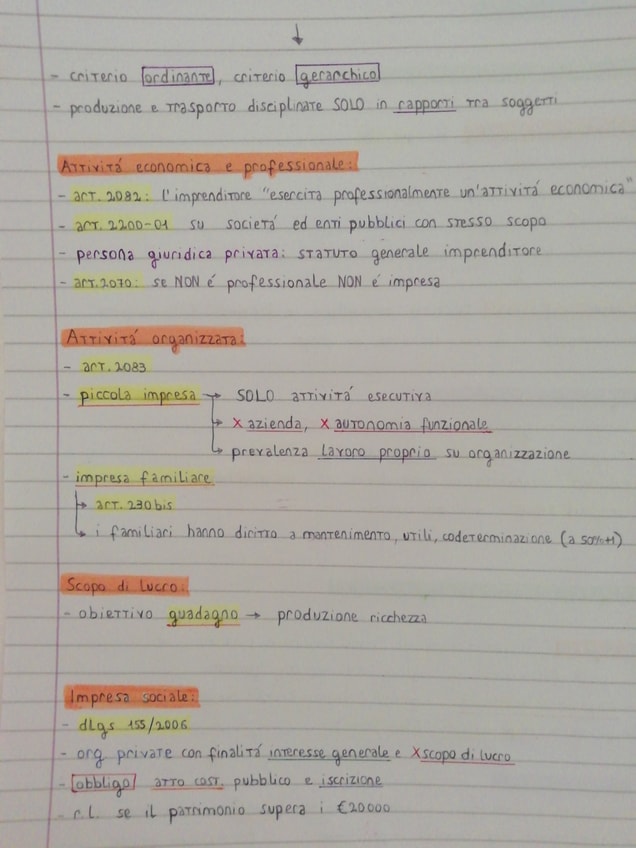 ↓
- criterio ordinante, criterio gerarchico
- produzione e trasporto disciplinate SOLO in rapporti tra soggetti
Attivitá economica e professionale:
- art. 2082: l'imprenditore "esercita professionalmente un'attivitá economica"
- art. 2200-01 su societá ed enti pubblici con stesso scopo
- persona giuridica privata: statuto generale imprenditore
- art. 2070: se NON é professionale NON é impresa
Attivitá organizzata:
- art. 2083
- piccola impresa → SOLO attivitá esecutiva
↳ X azienda, X autonomia funzionale
↳ prevalenza lavoro proprio su organizzazione
- impresa familiare
↳ art. 230 bis
↳ i familiari hanno diritto a mantenimento, utili, codeterminazione (a 50%+1)
Scopo di lucro:
- obiettivo guadagno → produzione ricchezza
Impresa sociale:
- dLgs 155/2006
- org private con finalitá interesse generale e X scopo di lucro
- obbligo atto cost. pubblico e iscrizione
- r.l. se il patrimonio supera i €20000